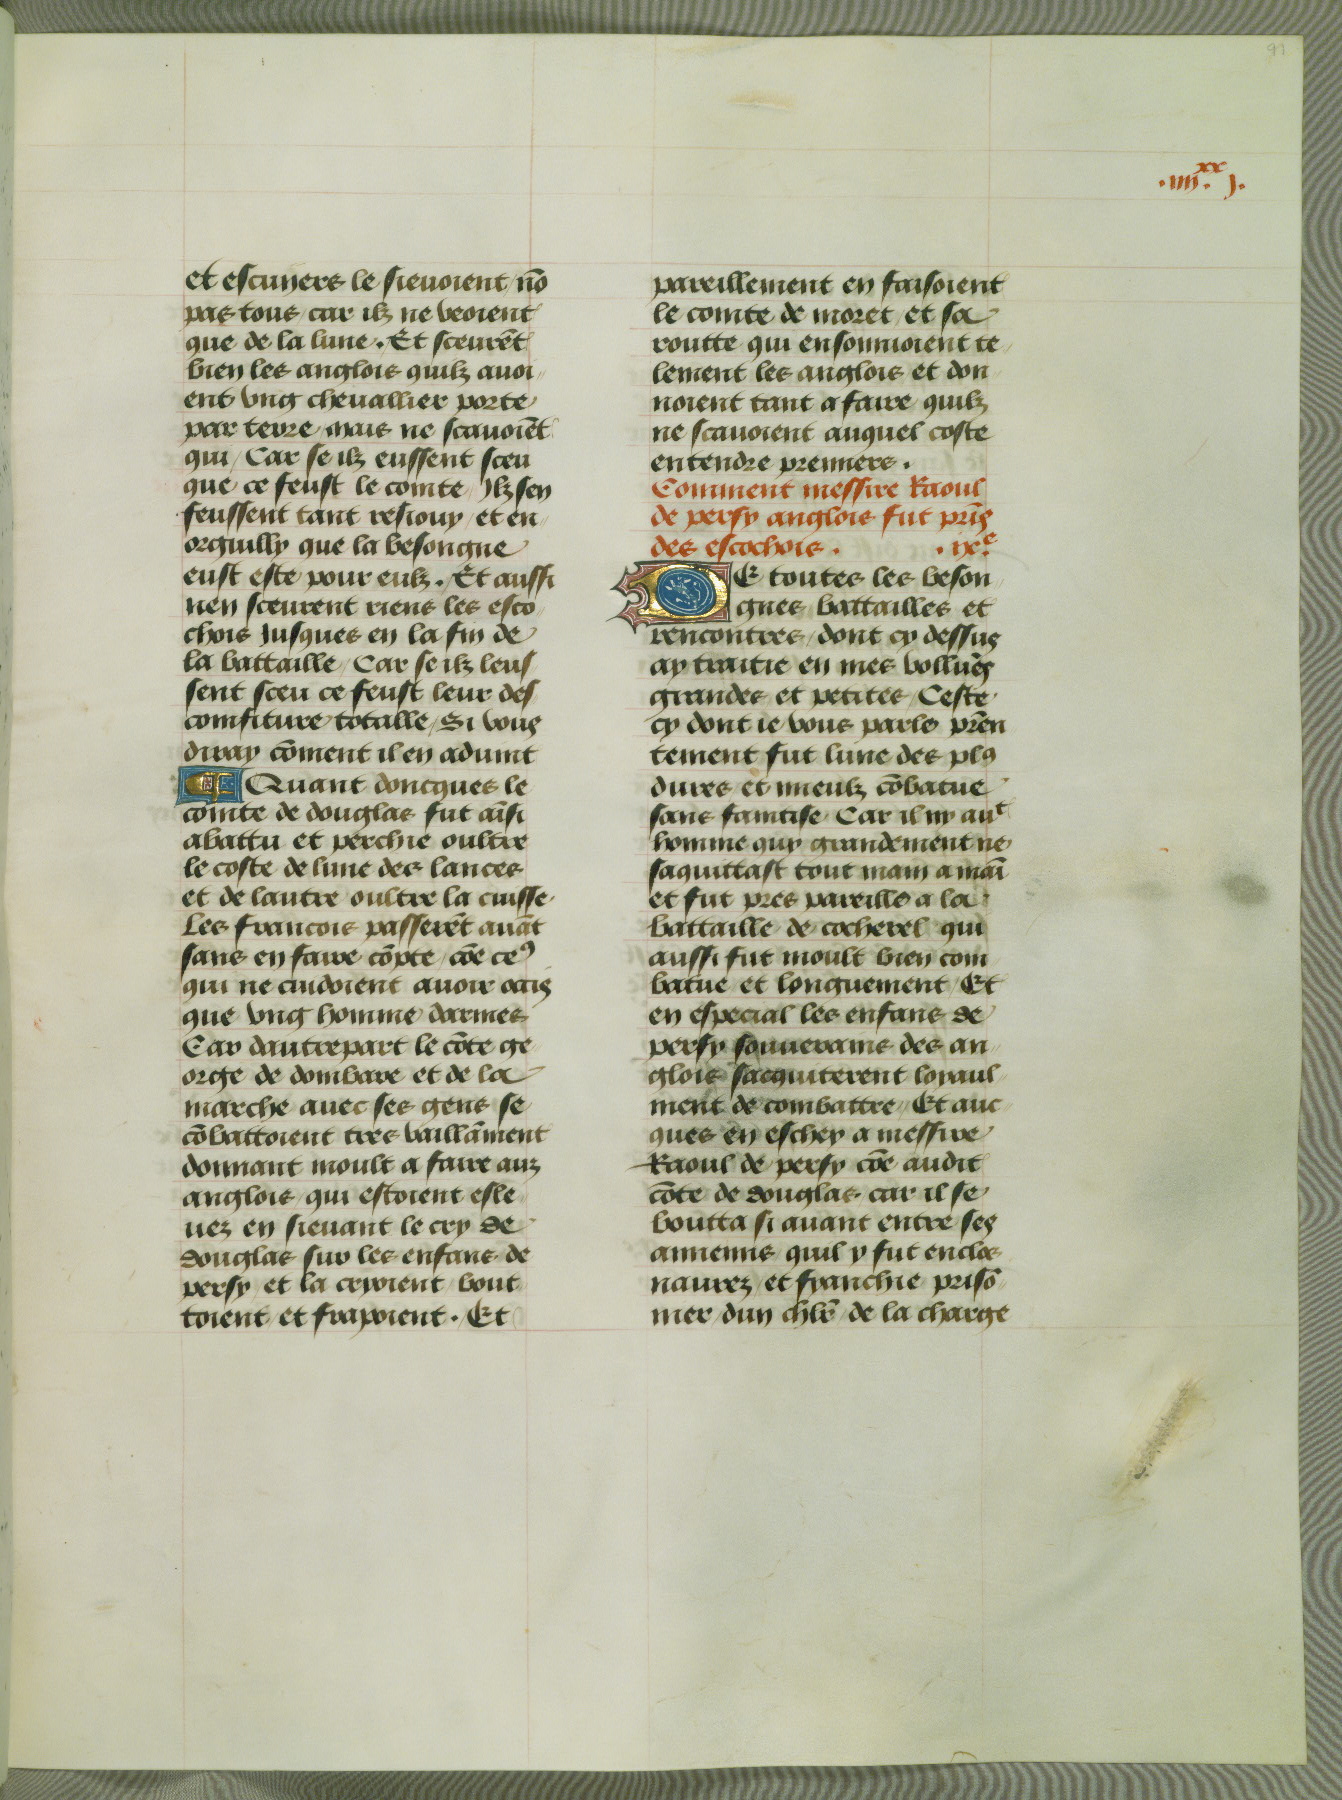 91
.iiii.xx j.
et escuyers le sieuoient / nō
pas tous / car ilz ne veoient
que de la lune . Et sceurēt
bien les anglois quilz auoi〃
ent vng cheuallier porte
par terre / mais ne scauoiēt
qui / Car se ilz eussent sceu
que ce feust le comte / Ilz sen
feussent tant resiouy / et en〃
orguilly que la besongne
eust este pour eulz . Et aussi
nen sceurent riens les esco〃
chois Jusques en la fin de
la battaille / Car se ilz leus
sent sceu ce feust leur des
comfiture totalle / Si vous
diray cōment il en aduint
Quant doncques le
comte de douglas fut aīsi
abattu et perchie oultre
le coste de lune des lances
et de lautre oultre la cuisse
Les francois passerēt auāt
sans en faire cōpte / cōe ceꝰ
qui ne cuidoient auoir occis
que vng homme darmes
Car dautrepart le cōte ge〃
orge de dombare et de la
marche auec ses gens se
cōbattoient tres vaillāment
donnant moult a faire auz
anglois / qui estoient esle〃
uez en sieuant le cry de
douglas sur les enfans de
persy / et la crioient bout
toient et frapoient . Et
pareillement en faisoient
le comte de moret / et sa
routte qui ensonnioient te〃
lement les anglois et don〃
noient tant a faire quilz
ne scauoient auquel coste
entendre premiers .
Comment messire Raoul
de persy anglois fut prīs
des escochois . . ixe.
DE toutes les beson〃
gnes battailles et
rencontres / dont cy dessus
ay traitie en mes vollūes
grandes et petites / Ceste
cy dont ie vous parle prēn
tement fut lune des plꝰ
dures et mieulz cōbatue
sans faintise / Car il ny auͭ
homme quy grandement ne
saquittast tout main a maī
et fut pres pareille a la
battaille de cocherel qui
aussi fut moult bien com〃
batue et longuement / Et
en especial les enfans de
persy souuerains des an〃
glois sacquiterent loyaul〃
ment de combattre / Et auc〃
ques en eschey a messire
Raoul de persy cōe audit
cōte de douglas / car il se
boutta si auant entre ses
annemis quil y fut enclos
naurez et franchie prisō〃
nier dun chlr̄ de la charge